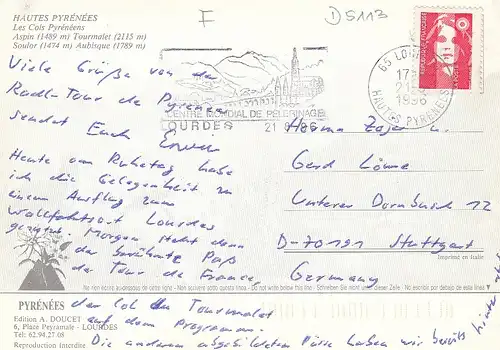 F
D5113
HAUTES PYRÉNÉES
Les Cols Pyrénéens
Aspin (1489 m) Tourmalet (2115 m)
Soulor (1474 m) Aubisque (1789 m)
Viele Grüße von der
Radl-Tour de Pyrenee
sendet Euch Erwin
Heute am Ruhetag habe
ich die Gelegenheit zu
einem Ausflug zum
Wallfahrtsort Lourdes
genutzt. Morgen steht dann
der berühmte Paß
der Tour de France,
der Col du Tourmalet
auf dem Programm.
Die anderen abgebildeten Pässe haben wir bereits hinter
CENTRE MONDIAL DE PELERINAGE
LOURDES
65 LOURDES
17
21
1996
HAUTES PYRENEES
REPUBLIQUE FRANÇAISE
LA POSTE
Gerd
Unterer Dornbusch 12
D-70191 Stuttgart
Germany
Imprimé en Italie
Ne rien écrire au-dessous de cette ligne - Non scrivere sotto questa linea - Do not write below this line - Nicht schreiben unter diese Linie - No escribir debajo de esta línea
PYRÉNÉES
Edition A. DOUCET
6, Place Peyramale - LOURDES
Tél: 62.94.27.08
Reproduction interdite